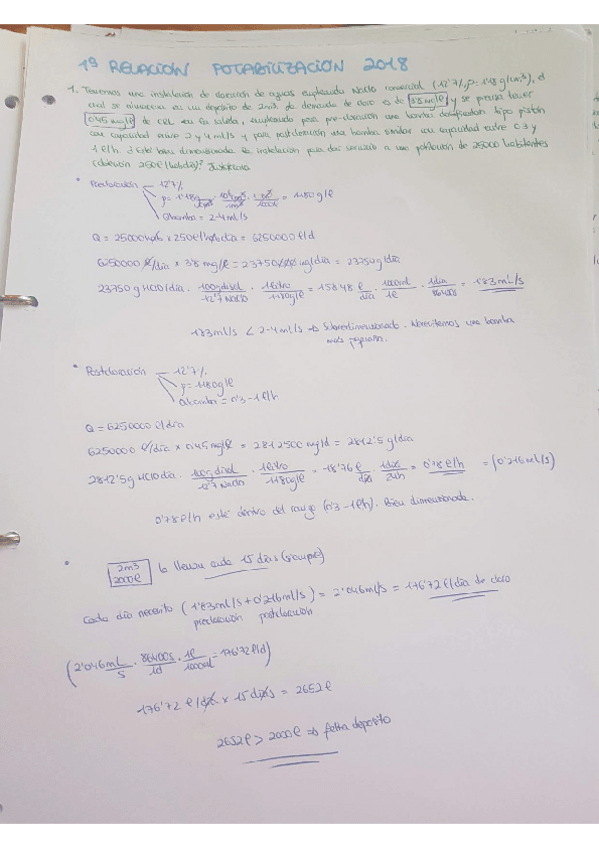 1ª RELACIÓN POTABILIZACIÓN 2018
1. Tenemos una instalación de cloración de aguas empleando NaClO comercial (12'7%, ρ: 1'18 g/cm3), el
cual se almacena en un depósito de 2m3. La demanda de cloro es de 3'8 mg/l y se precisa tener
0'45 mg/l de CRL en la salida, empleando para pre-cloración una bomba dosificadora tipo pistón
con capacidad entre 2 y 4 ml/s y para postcloración una bomba similar con capacidad entre 0'3 y
1 l/h. ¿Está bien dimensionada la instalación para dar servicio a una población de 25000 habitantes
(dotación 250 l/hab·día)? Justifícalo
• Precloración — 12'7%
ρ= 1'18 g/cm3 · 10⁶cm3/1m3 · 1m3/1000l = 1180 g/l
Qbomba = 2-4 ml/s
Q = 25000 hab × 250 l/hab día = 6250000 l/d
6250000 l/día × 3'8 mg/l = 23750000 mg/día = 23750 g/día
23750 g HClO/día · 100g disol/12'7 NaClO · 1 litro/1180 g/l = 158'48 l/día · 1000ml/1l · 1día/86400s = 1'83 ml/s
1'83 ml/s < 2-4 ml/s ⇒ Sobredimensionado. Necesitamos una bomba
más pequeña.
• Postcloración — 12'7%
ρ= 1180 g/l
Qbomba = 0'3 - 1 l/h
Q = 6250000 l/día
6250000 l/día × 0'45 mg/l = 2812500 mg/d = 2812'5 g/día
2812'5 g HClO/día · 100g disol/12'7 NaClO · 1 litro/1180 g/l = 18'76 l/día · 1día/24h = 0'78 l/h = (0'216 ml/s)
0'78 l/h está dentro del rango (0'3 - 1 l/h). Bien dimensionada.
• 2m3
2000 l
lo llenan cada 15 días (siempre)
Cada día necesito (1'83 ml/s + 0'216 ml/s) = 2'046 ml/s = 176'72 l/día de cloro
precloración postcloración
(2'046 mL/s · 86400s/1d · 1l/1000ml = 176'72 l/d)
176'72 l/día × 15 días = 2652 l
2652 l > 2000 l ⇒ falta depósito